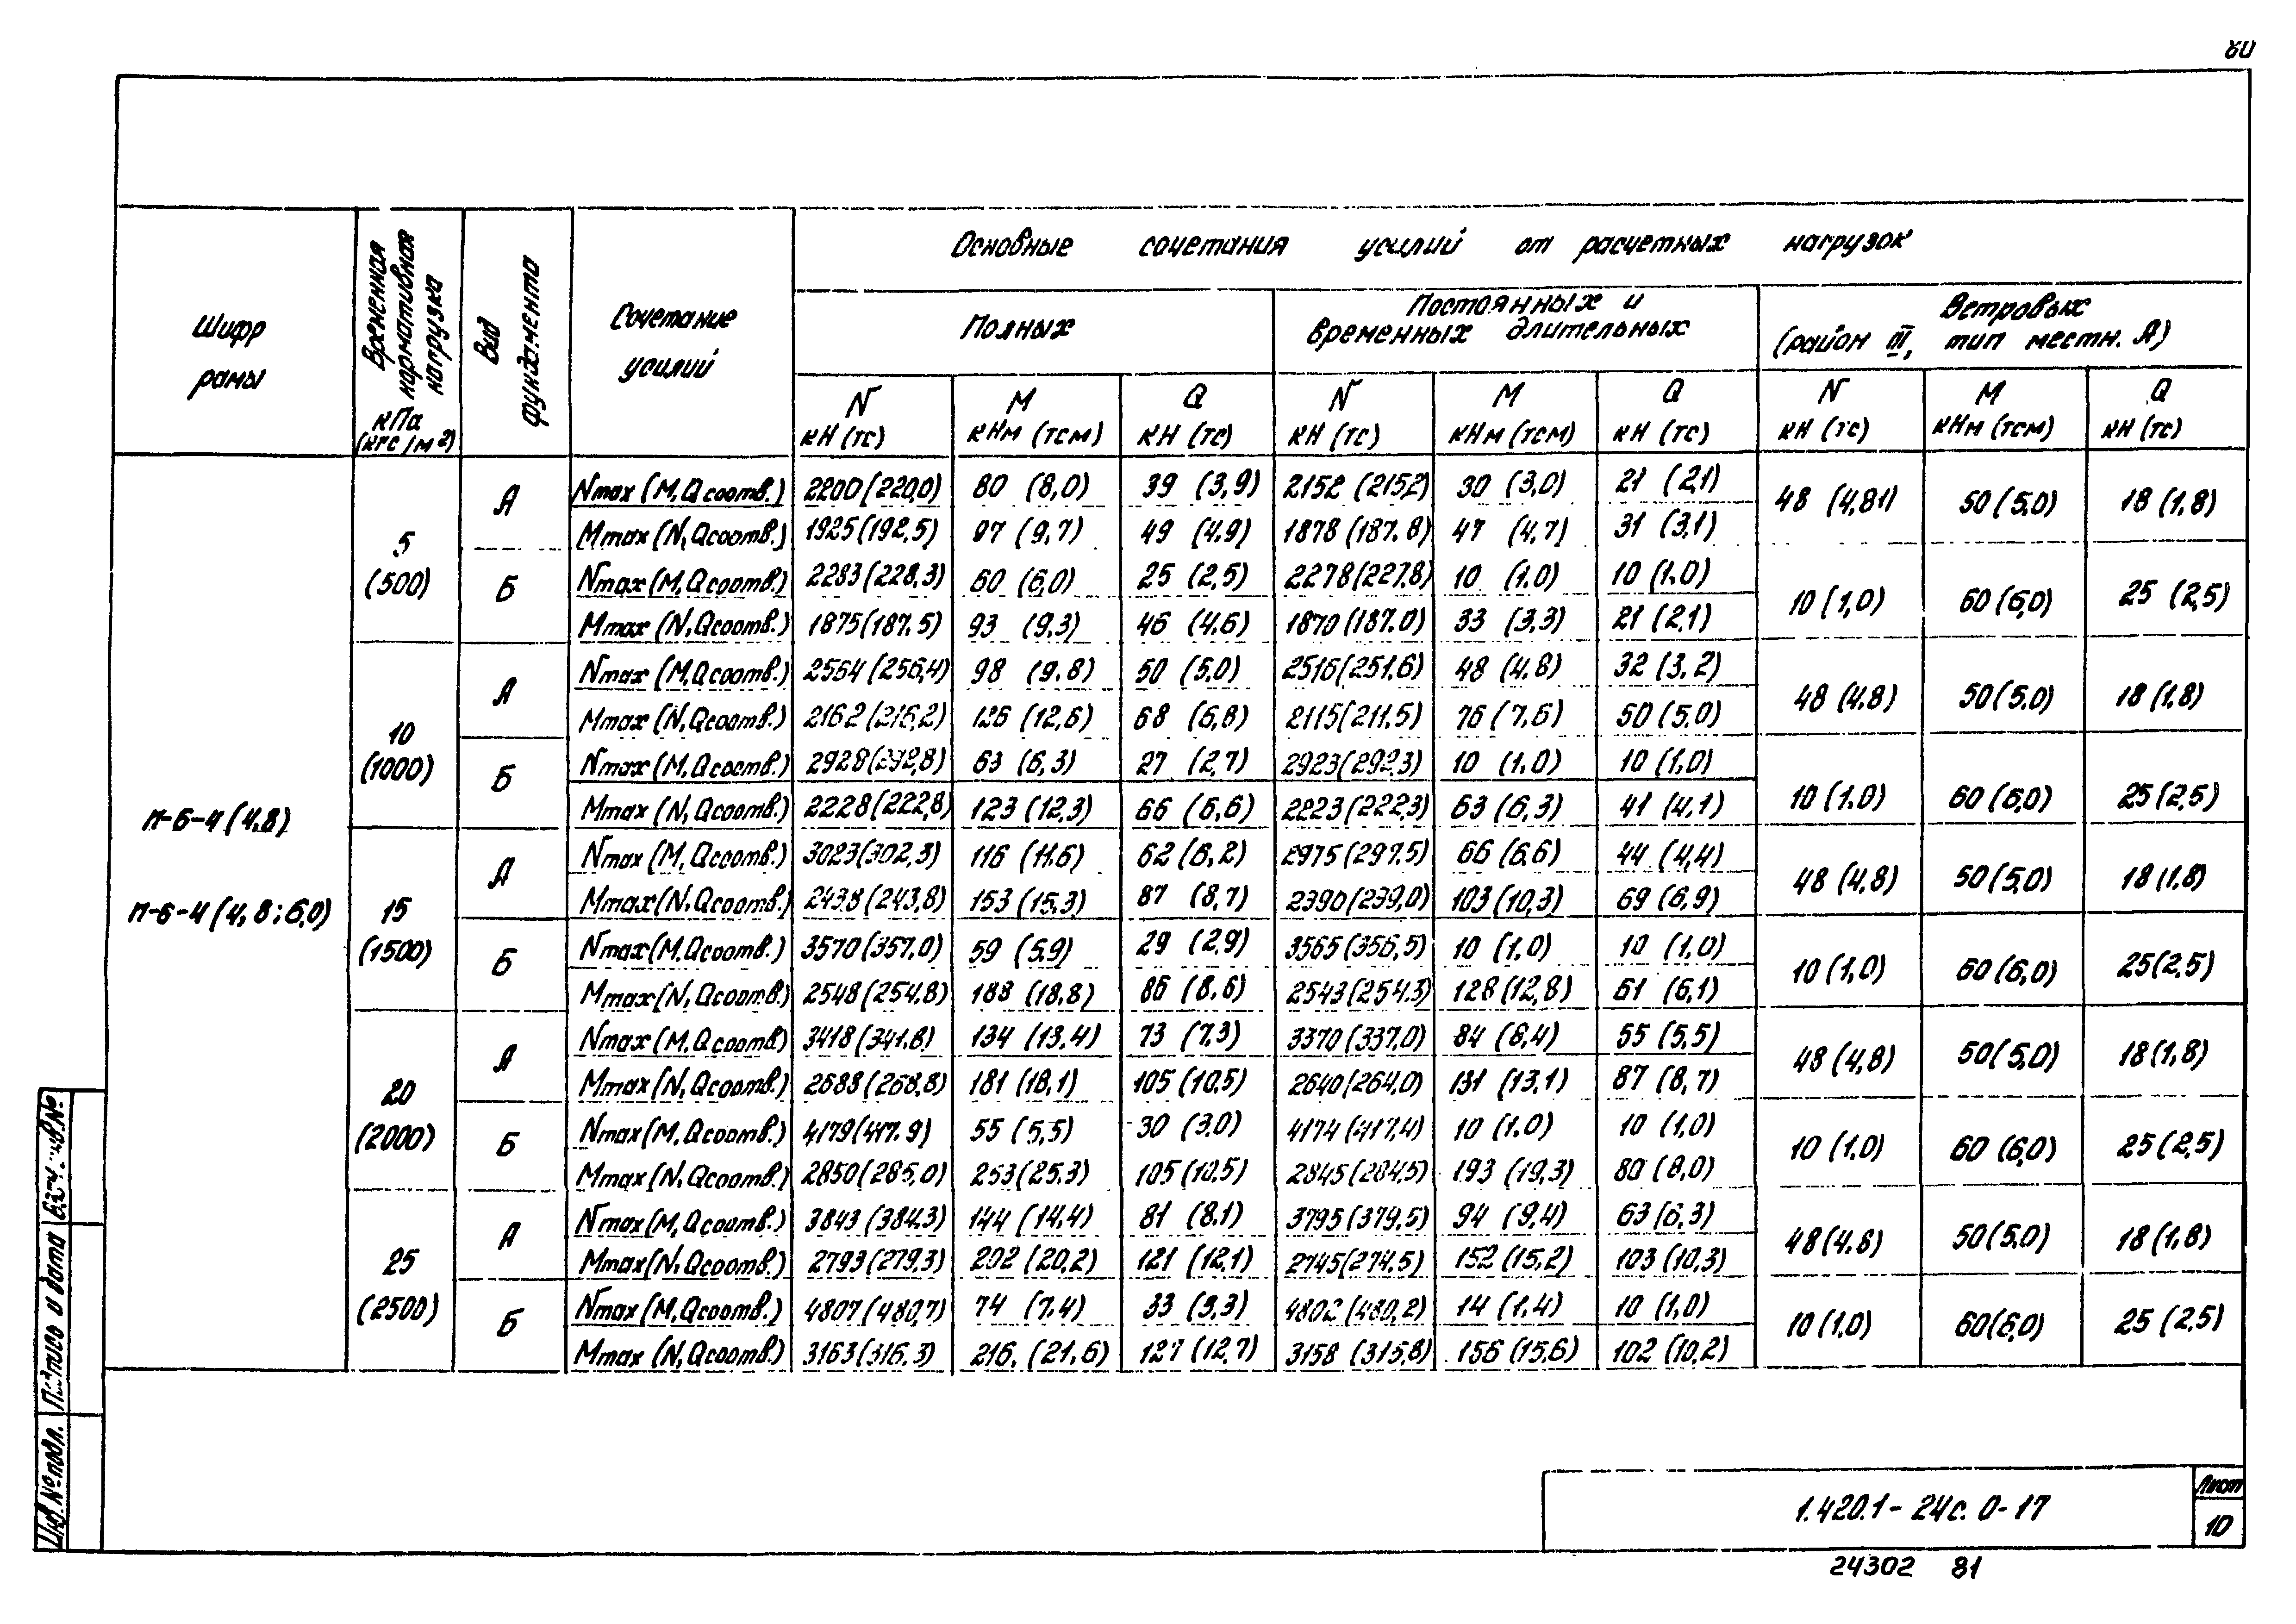 80
Шифр рамы
Временная нормативная нагрузка кПа (кгс/м²)
Вид фундамента
Сочетание усилий
Основные сочетания усилий от расчетных нагрузок
Полных
Постоянных и временных длительных
Ветровых (район III, тип местн. А)
N кН (тс) M кНм (тсм) Q кН (тс) N кН (тс) M кНм (тсм) Q кН (тс) N кН (тс) M кНм (тсм) Q кН (тс)
п-6-4 (4,8)
п-6-4 (4,8; 6,0)
5 (500)
А
Nmax (M, Qсоотв.) 2200 (220,0) 80 (8,0) 39 (3,9) 2152 (215,2) 30 (3,0) 21 (2,1) 48 (4,81) 50 (5,0) 18 (1,8)
Mmax (N, Qсоотв.) 1925 (192,5) 97 (9,7) 49 (4,9) 1878 (187,8) 47 (4,7) 31 (3,1)
Б
Nmax (M, Qсоотв.) 2283 (228,3) 60 (6,0) 25 (2,5) 2278 (227,8) 10 (1,0) 10 (1,0) 10 (1,0) 60 (6,0) 25 (2,5)
Mmax (N, Qсоотв.) 1875 (187,5) 93 (9,3) 46 (4,6) 1870 (187,0) 33 (3,3) 21 (2,1)
10 (1000)
А
Nmax (M, Qсоотв.) 2564 (256,4) 98 (9,8) 50 (5,0) 2516 (251,6) 48 (4,8) 32 (3,2) 48 (4,8) 50 (5,0) 18 (1,8)
Mmax (N, Qсоотв.) 2162 (216,2) 126 (12,6) 68 (6,8) 2115 (211,5) 76 (7,6) 50 (5,0)
Б
Nmax (M, Qсоотв.) 2928 (292,8) 63 (6,3) 27 (2,7) 2923 (292,3) 10 (1,0) 10 (1,0) 10 (1,0) 60 (6,0) 25 (2,5)
Mmax (N, Qсоотв.) 2228 (222,8) 123 (12,3) 66 (6,6) 2223 (222,3) 63 (6,3) 41 (4,1)
15 (1500)
А
Nmax (M, Qсоотв.) 3023 (302,3) 116 (11,6) 62 (6,2) 2975 (297,5) 66 (6,6) 44 (4,4) 48 (4,8) 50 (5,0) 18 (1,8)
Mmax (N, Qсоотв.) 2438 (243,8) 153 (15,3) 87 (8,7) 2390 (239,0) 103 (10,3) 69 (6,9)
Б
Nmax (M, Qсоотв.) 3570 (357,0) 59 (5,9) 29 (2,9) 3565 (356,5) 10 (1,0) 10 (1,0) 10 (1,0) 60 (6,0) 25 (2,5)
Mmax (N, Qсоотв.) 2548 (254,8) 188 (18,8) 86 (8,6) 2543 (254,3) 128 (12,8) 61 (6,1)
20 (2000)
А
Nmax (M, Qсоотв.) 3418 (341,8) 134 (13,4) 73 (7,3) 3370 (337,0) 84 (8,4) 55 (5,5) 48 (4,8) 50 (5,0) 18 (1,8)
Mmax (N, Qсоотв.) 2688 (268,8) 181 (18,1) 105 (10,5) 2640 (264,0) 131 (13,1) 87 (8,7)
Б
Nmax (M, Qсоотв.) 4179 (417,9) 55 (5,5) 30 (3,0) 4174 (417,4) 10 (1,0) 10 (1,0) 10 (1,0) 60 (6,0) 25 (2,5)
Mmax (N, Qсоотв.) 2850 (285,0) 253 (25,3) 105 (10,5) 2845 (284,5) 193 (19,3) 80 (8,0)
25 (2500)
А
Nmax (M, Qсоотв.) 3843 (384,3) 144 (14,4) 81 (8,1) 3795 (379,5) 94 (9,4) 63 (6,3) 48 (4,8) 50 (5,0) 18 (1,8)
Mmax (N, Qсоотв.) 2793 (279,3) 202 (20,2) 121 (12,1) 2745 (274,5) 152 (15,2) 103 (10,3)
Б
Nmax (M, Qсоотв.) 4807 (480,7) 74 (7,4) 33 (3,3) 4802 (480,2) 14 (1,4) 10 (1,0) 10 (1,0) 60 (6,0) 25 (2,5)
Mmax (N, Qсоотв.) 3163 (316,3) 216 (21,6) 127 (12,7) 3158 (315,8) 156 (15,6) 102 (10,2)
Инв. № подл.
Подпись и дата
Взам. инв. №
1.420.1-24с. 0-17
Лист
10
24302 81